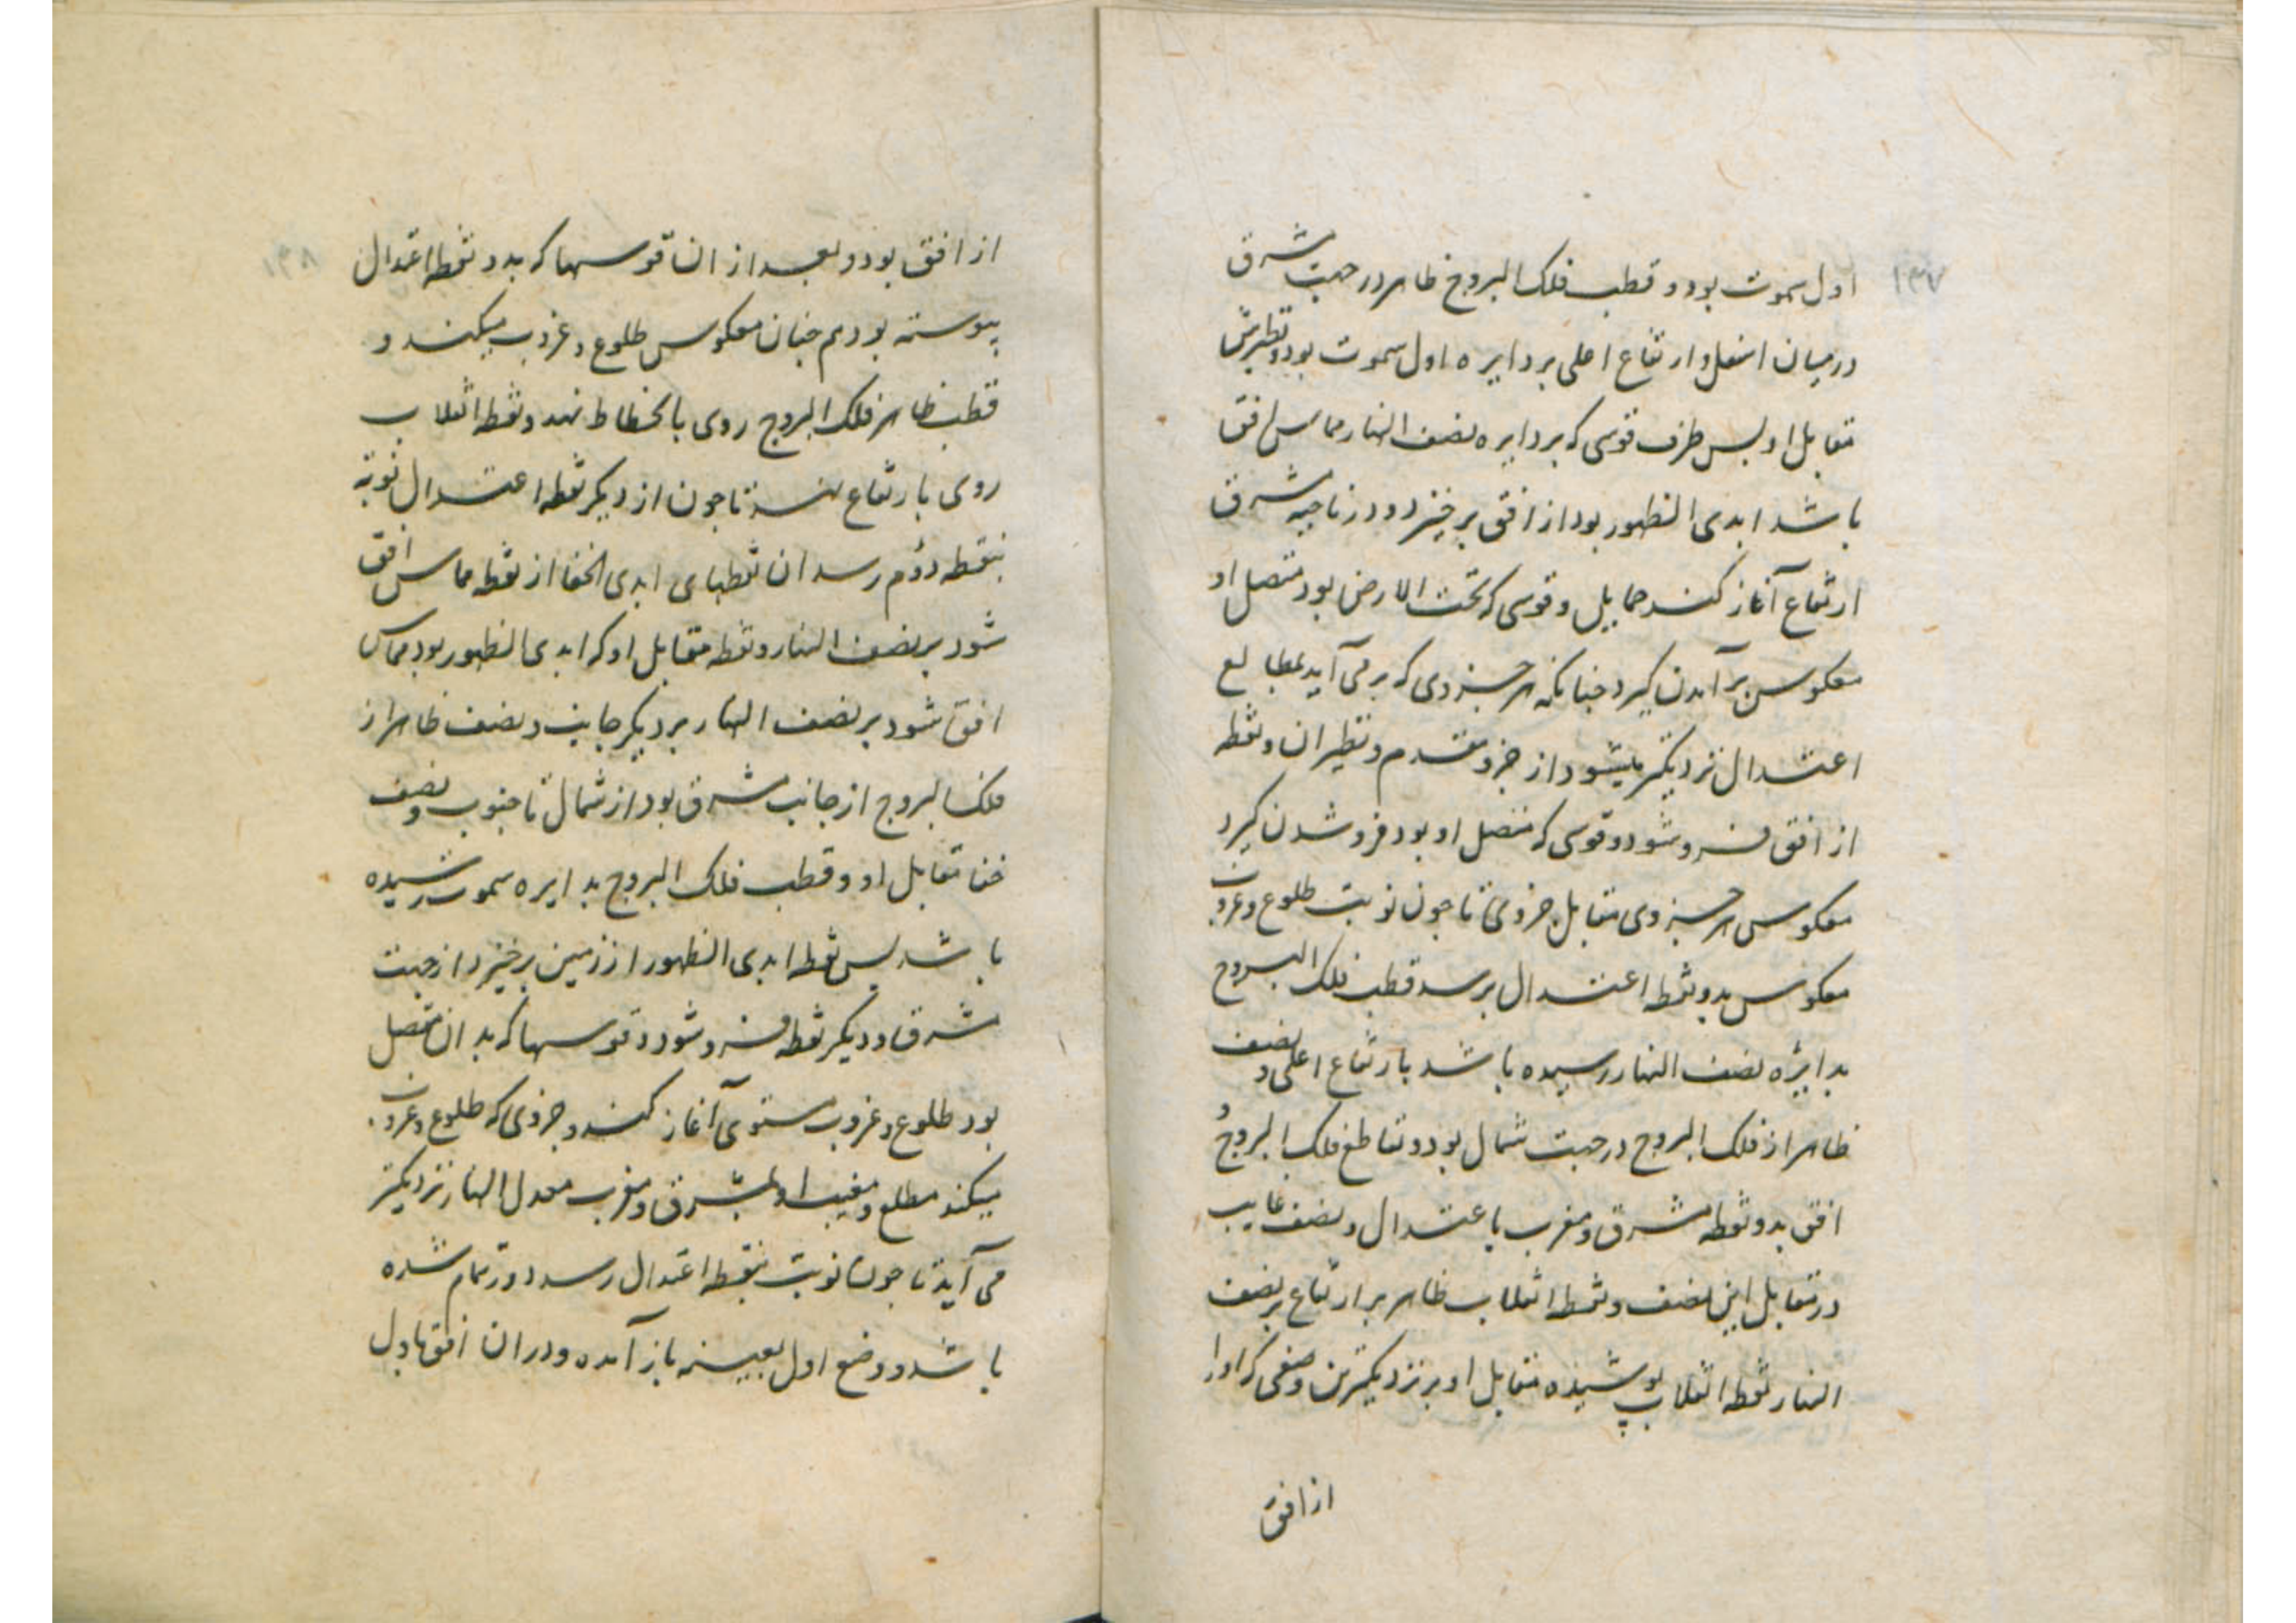 ۱۳۷
اول سموت بود و قطب فلک البروج ظاهر در جهت شرق
در میان اسفل و ارتفاع اعلی بر دایره اول سموت بود و نظیرش
مقابل او بس طرف قوسی که بر دایره نصف النهار مماس افق
باشد ابدی الظهور بود از افق برخیزد و در ناحیه شرق
ارتفاع آغاز کند حمایل و قوسی که تحت الارض بود متصل او
معکوس بر آمدن کیرد جنانکه هر جزوی که بر می آید بمطالع
اعتدال نزدیکتر میشود از جزو مقدم و نظیر ان و نقطه
از افق فرو شود و قوسی که متصل او بود فرو شدن کیرد
معکوس هر جزوی مقابل جزوی تا جون نوبت طلوع و غروب
معکوس بدو نقطه اعتدال برسد قطب فلک البروج
بدایره نصف النهار رسیده باشد بارتفاع اعلی و نصف
ظاهر از فلک البروج در جهت شمال بود و تقاطع فلک البروج و
افق بدو نقطه مشرق و مغرب با عتدال و نصف غایب
در مقابل این نصف و نقطه انقلاب ظاهر بر ارتفاع بر نصف
النهار نقطه انقلاب پوشیده مقابل او بر نزدیکترین وضعی که او را
از افق
۱۳۸
از افق بود و بعد از ان قوسها که بدو نقطه اعتدال
پیوسته بود هم جنان معکوس طلوع و غروب میکند و
قطب ظاهر فلک البروج روی بانحطاط نهد و نقطه انقلاب
روی بارتفاع نهد تا جون از دیکر نقطه اعتدال نوبة
بنقطه دوم رسد ان نقطهای ابدی الخفا از نقطه مماس افق
شود بر نصف النهار و نقطه مقابل او که ابدی الظهور بود مماس
افق شود بر نصف النهار بر دیکر جانب و نصف ظاهر از
فلک البروج از جانب مشرق بود از شمال تا جنوب و نصف
خفا مقابل او و قطب فلک البروج بدایره سموت رسیده
باشد بس نقطه ابدی الظهور از زمین برخیزد از جهت
شرق و دیکر نقطه فرو شود و قوسها که بدان متصل
بود طلوع و غروب مستوی آغاز کند و جزوی که طلوع و غروب
میکند مطلع و مغیب او بمشرق و مغرب معدل النهار نزدیکتر
می آید تا جون نوبت بنقطه اعتدال رسد دور تمام شده
باشد و وضع اول بعینه باز آمده و در ان افقها دل